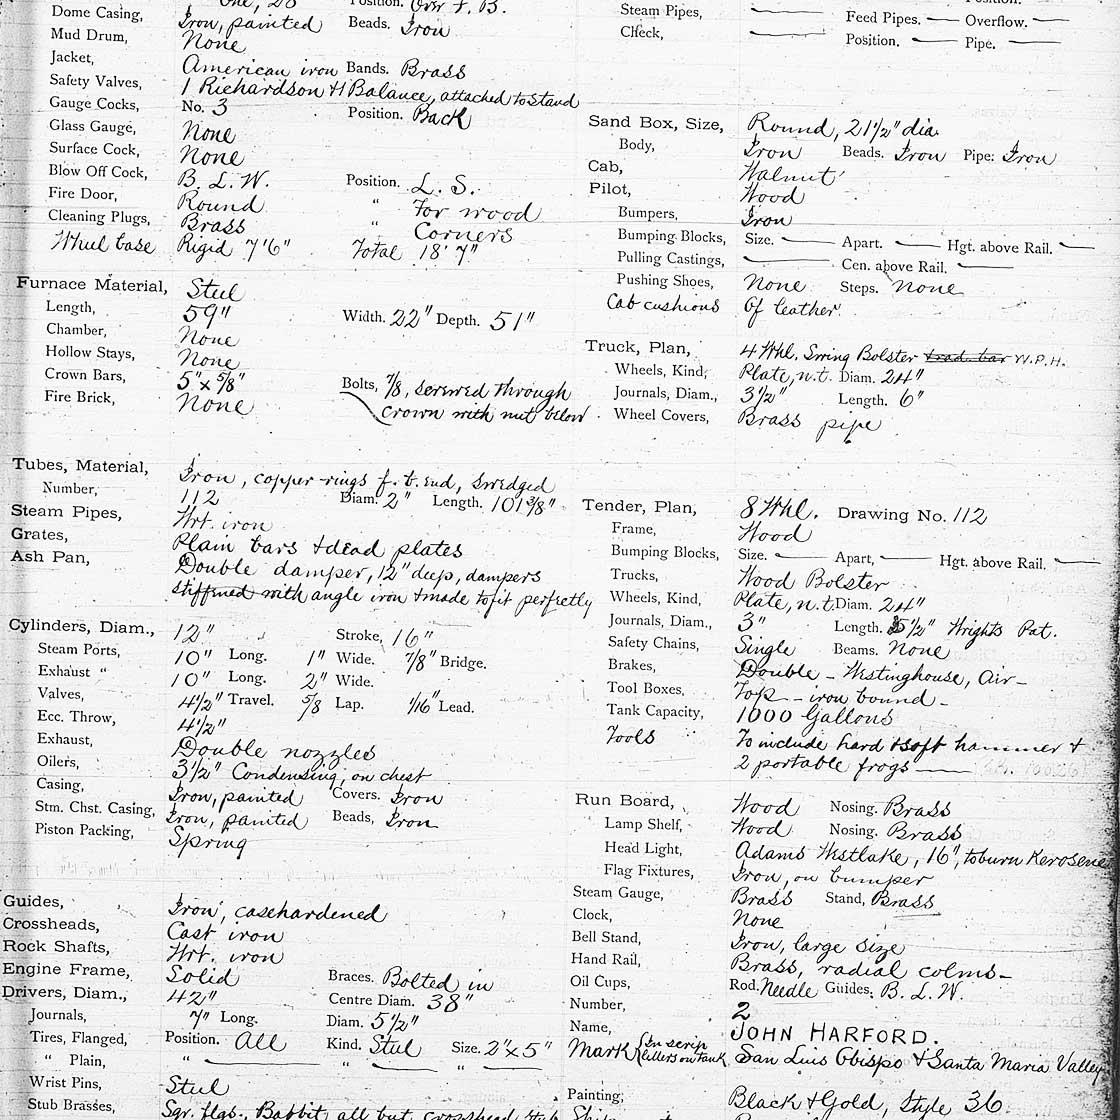 One, 20 Position. Over F. B.
Dome Casing, Iron, painted Beads. Iron
Mud Drum, None
Jacket, American iron Bands. Brass
Safety Valves, 1 Richardson + 1 Balance, attached to stand
Gauge Cocks, No. 3 Position. Back
Glass Gauge, None
Surface Cock, None
Blow Off Cock, B. L. W. Position. L. S.
Fire Door, Round " For wood
Cleaning Plugs, Brass " Corners
Wheel base Rigid 7'6" Total 18'7"
Furnace Material, Steel
Length, 59" Width. 22" Depth. 51"
Chamber, None
Hollow Stays, None
Crown Bars, 5" x 5/8" Bolts, 7/8, screwed through
Fire Brick, None crown with nut below
Tubes, Material, Iron, copper rings f. t. end, swedged
Number, 112 Diam. 2" Length. 101 3/8"
Steam Pipes, Wrt. iron
Grates, Plain bars + dead plates
Ash Pan, Double damper, 12" deep, dampers
stiffened with angle iron + made to fit perfectly
Cylinders, Diam., 12" Stroke, 16"
Steam Ports, 10" Long. 1" Wide. 7/8" Bridge.
Exhaust " 10" Long. 2" Wide.
Valves, 4 1/2" Travel. 5/8 Lap. 1/16" Lead.
Ecc. Throw, 4 1/2"
Exhaust, Double nozzles
Oilers, 3 1/2" Condensing, on chest
Casing, Iron, painted Covers. Iron
Stm. Chst. Casing, Iron, painted Beads, Iron
Piston Packing, Spring
Guides, Iron, casehardened
Crossheads, Cast iron
Rock Shafts, Wrt. iron
Engine Frame, Solid Braces. Bolted in
Drivers, Diam., 42" Centre Diam. 38"
Journals, 7" Long. Diam. 5 1/2"
Tires, Flanged, Position. All Kind. Steel Size. 2" x 5"
" Plain, " — " — " —
Wrist Pins, Steel
Stub Brasses, Sqr. flgs., Babbitt all but crosshead stub
Position.
Steam Pipes, — Feed Pipes. — Overflow. —
Check, — Position. — Pipe. —
Sand Box, Size, Round, 21 1/2" dia.
Body, Iron Beads. Iron Pipe: Iron
Cab, Walnut
Pilot, Wood
Bumpers, Iron
Bumping Blocks, Size. — Apart. — Hgt. above Rail. —
Pulling Castings, — Cen. above Rail. —
Pushing Shoes, None Steps. None
Cab cushions Of leather.
Truck, Plan, 4 Whl. Swing Bolster trad. bar W.P.H.
Wheels, Kind, Plate, n.t. Diam. 24"
Journals, Diam., 3 1/2" Length. 6"
Wheel Covers, Brass pipe
Tender, Plan, 8 Whl. Drawing No. 112
Frame, Wood
Bumping Blocks, Size. — Apart, — Hgt. above Rail. —
Trucks, Wood Bolster
Wheels, Kind, Plate, n.t. Diam. 24"
Journals, Diam., 3" Length. 5 1/2" Wrights Pat.
Safety Chains, Single Beams. None
Brakes, Double - Westinghouse, Air -
Tool Boxes, Top - iron bound -
Tank Capacity, 1000 Gallons
Tools To include hard + soft hammer +
2 portable frogs —
Run Board, Wood Nosing. Brass
Lamp Shelf, Wood Nosing. Brass
Head Light, Adams Westlake, 16", to burn Kerosene
Flag Fixtures, Iron, on bumper
Steam Gauge, Brass Stand, Brass
Clock, None
Bell Stand, Iron, large size
Hand Rail, Brass, radial colms -
Oil Cups, Rod. Needle Guides. B. L. W.
Number, 2
Name, JOHN HARFORD.
Mark (In scrip letters on tank San Luis Obispo + Santa Maria Valley
Painting, Black + Gold, Style 36